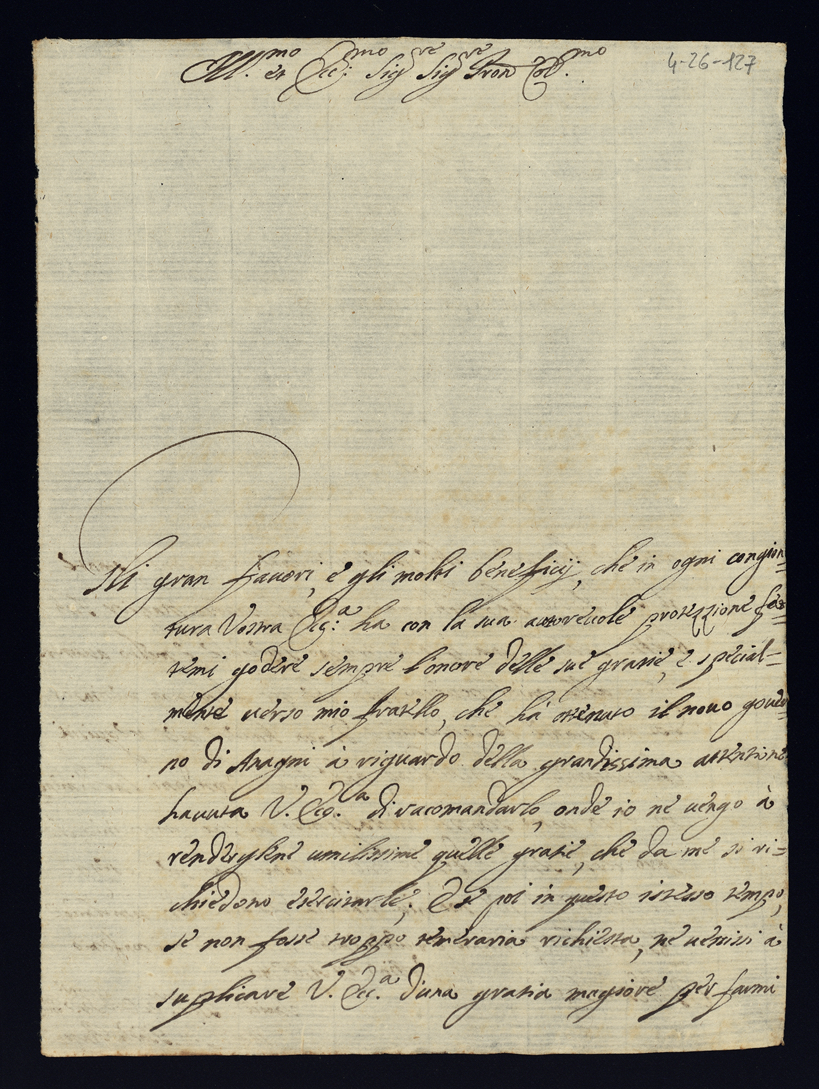 Ill.mo et Ecc.mo Sig.re Sig.re Pron Col.mo
4-26-127
Ili gran favori, e gli molti beneficij, che in ogni congion=
tura Vostra Ecc.a ha con la sua autorevole protezzione fat=
temi godere sempre l'onore delle sue gratie, e special=
mente verso mio fratello, che hà ottenuto il novo gover=
no di Anagni à riguardo della grandissima attentione
havuta V. Ecc.a di racomandarlo, onde io ne vengo à
renderglene umilissime quelle gratie, che da me si ri=
chiedono esercitarle; E se poi in questo istesso tempo,
se non fosse troppo temeraria richiesta, ne venissi à
suplicare V. Ecc.a d'una gratia magiore per farmi